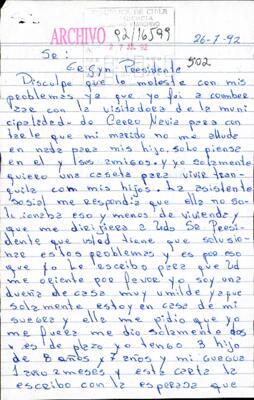 REPUBLICA DE CHILE
PRESIDENCIA
ARCHIVO 92/16599
27 JUL. 92
26-7-92
Se:
Ee Gyn. Peesidente 502
Disculpe que le moleste con mis
problemas ya que yo fui a comber
zar con la visitadora de la muni
cipalidad de Cerro Navia para con
tarle que mi marido no me allude
en nada para mis hijo. solo piensa
en el y sos amigos. y yo solamente
quiero una caseta para vivir tran
quila com mis hijos. La asistente
sosial me respondia que ella no so
lionaba eso y menos de vivienda y
que me dirijiera a Uds Se Peesi
dente que usted tiene que solusio
nar estos problemas y es por eso
que yo le escribo para que Ud
me oriente por favor yo soy una
dueña de casa muy umilde ya que
solamente estoy en casa de mi
suegra y ella me pidio que yo
me fuera me dio solamente dos
de plazo yo tengo 3 hijo
de 8 años y 7 años y mi guagua
1 año 2 meses y esta carta la
escribo con la esperasa que